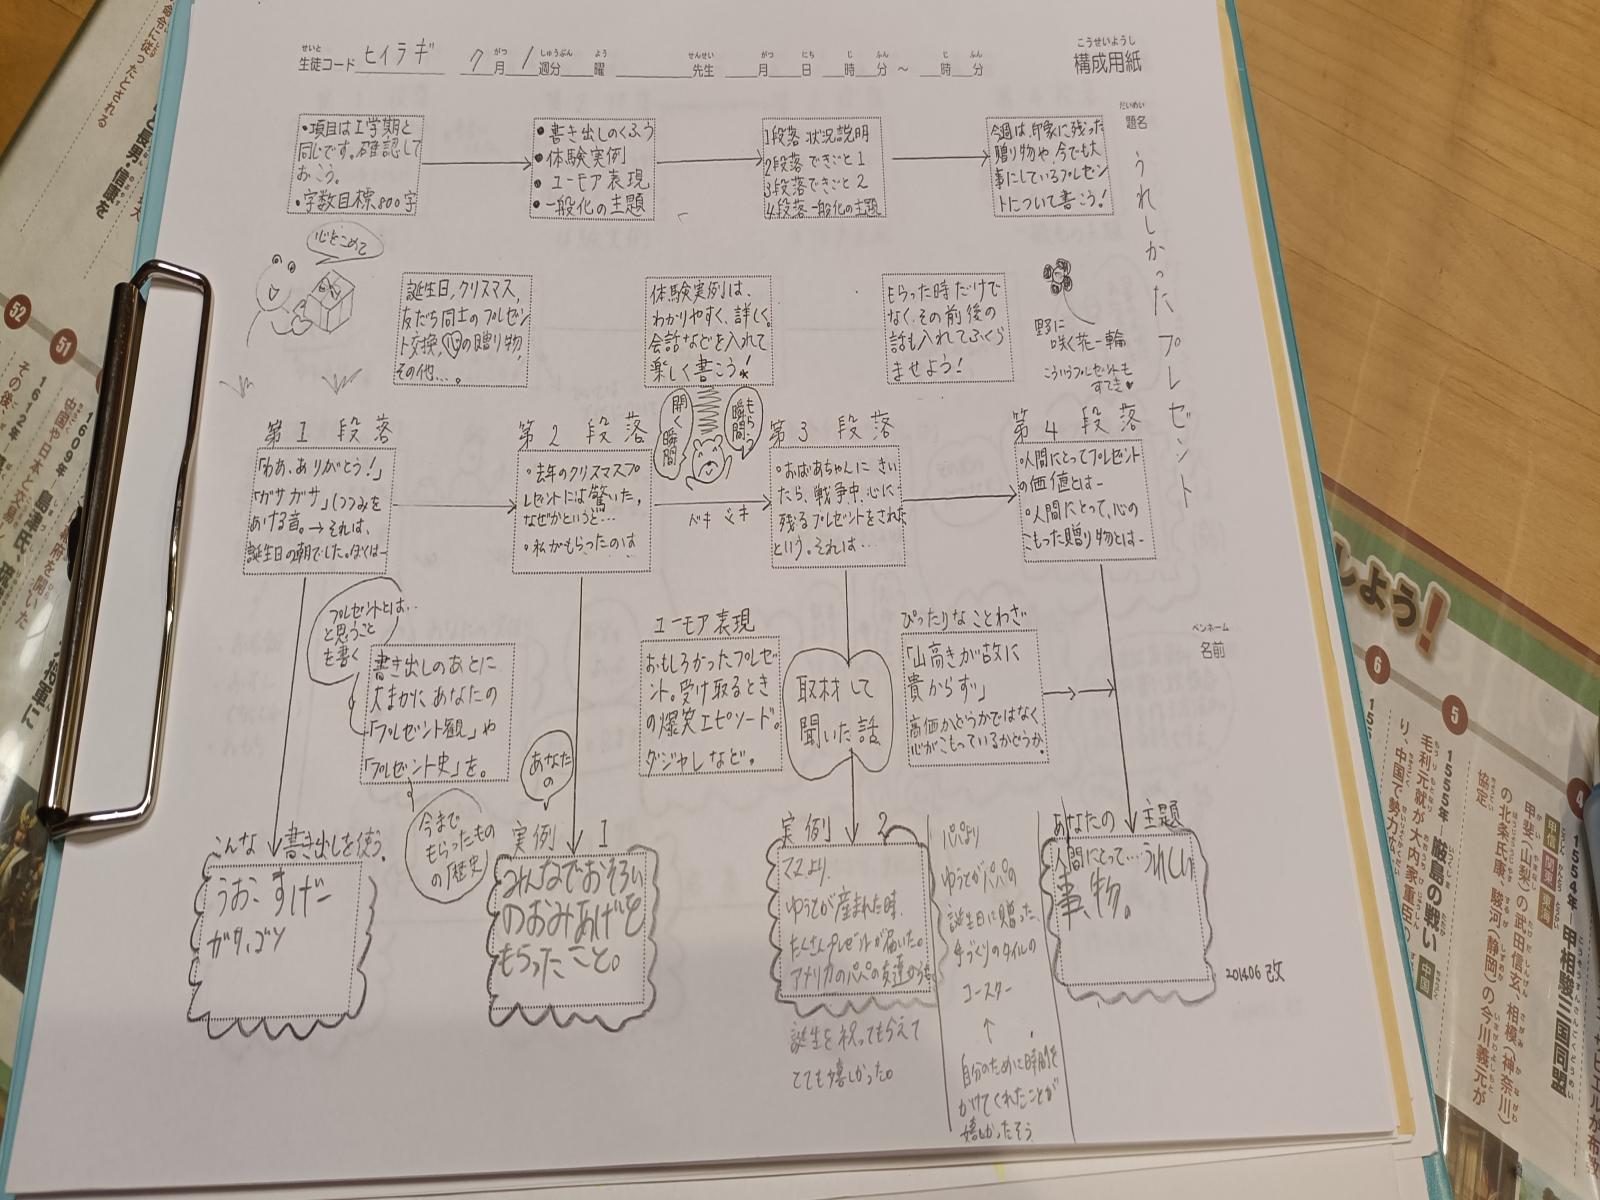 生徒コード ヒイラギ 7月1週分 曜 先生 月 日 時 分 ～ 時 分
構成用紙
題名 うれしかったプレゼント
・項目は1学期と
同じです。確認して
おこう。
・字数目標800字
●書き出しのくふう
●体験実例
●ユーモア表現
●一般化の主題
1段落 状況説明
2段落 できごと1
3段落 できごと2
4段落 一般化の主題
今週は、印象に残った
贈り物や、今でも大
事にしているプレゼン
トについて書こう！
心をこめて
誕生日、クリスマス、
友だち同士のプレゼン
ト交換、心の贈り物、
その他…。
体験実例は、
わかりやすく、詳しく。
会話などを入れて
楽しく書こう！
もらった時だけで
なく、その前後の
話も入れてふくら
ませよう！
野に
咲く花一輪
こういうプレゼントも
すてき♥
第1段落
「わあ、ありがとう！」
「ガサガサ」つつみを
あける音。→それは、
誕生日の朝でした。ぼくは―
第2段落
・去年のクリスマスプ
レゼントには驚いた。
なぜかというと…
・私がもらったのは
開く瞬間
もらう瞬間
ドキ ドキ
第3段落
・おばあちゃんにきい
たら、戦争中、心に
残るプレゼントをされた
という。それは…
第4段落
・人間にとってプレゼント
の価値とは―
・人間にとって、心の
こもった贈り物とは―
プレゼントとは‥
と思うこと
を書く
書き出しのあとに
大まかに あなたの
「プレゼント観」や
「プレゼント史」を。
今まで
もらったもの
の「歴史」
ユーモア表現
おもしろかったプレゼ
ント。受け取るとき
の爆笑エピソード。
ダジャレなど。
取材して
聞いた話
ぴったりなことわざ
「山高きが故に
貴からず」
高価かどうかではなく
心がこもっているかどうか。
ペンネーム
名前
こんな書き出しを使う。
うおっ すげー
あなたの
実例 1
みんなでおそろい
のおみあげを
もらったこと。
実例 2
ママより
ゆうとが産まれた時、
たくさんプレゼントが届いた。
アメリカのパパの友達からも
誕生を祝ってもらえて
とても嬉しかった。
パパより
ゆうとがパパの
誕生日に贈った、
手づくりのタイルの
コースター
↑
自分のために時間を
かけてくれたことが
嬉しかったそう
あなたの 主題
人間にとって…うれしい
事、物。
2014.06 改
しよう！
4
1554年―甲相駿三国同盟
甲信 関東 東海
甲斐（山梨）の武田信玄、相模（神奈川）
の北条氏康、駿河（静岡）の今川義元が
協定
5
1555年―厳島の戦い 中国
毛利元就が大内家重臣の
り、中国で勢力広
6
51
1609年―島津氏、琉
中国や日本と交易し
52
1612年
その後、